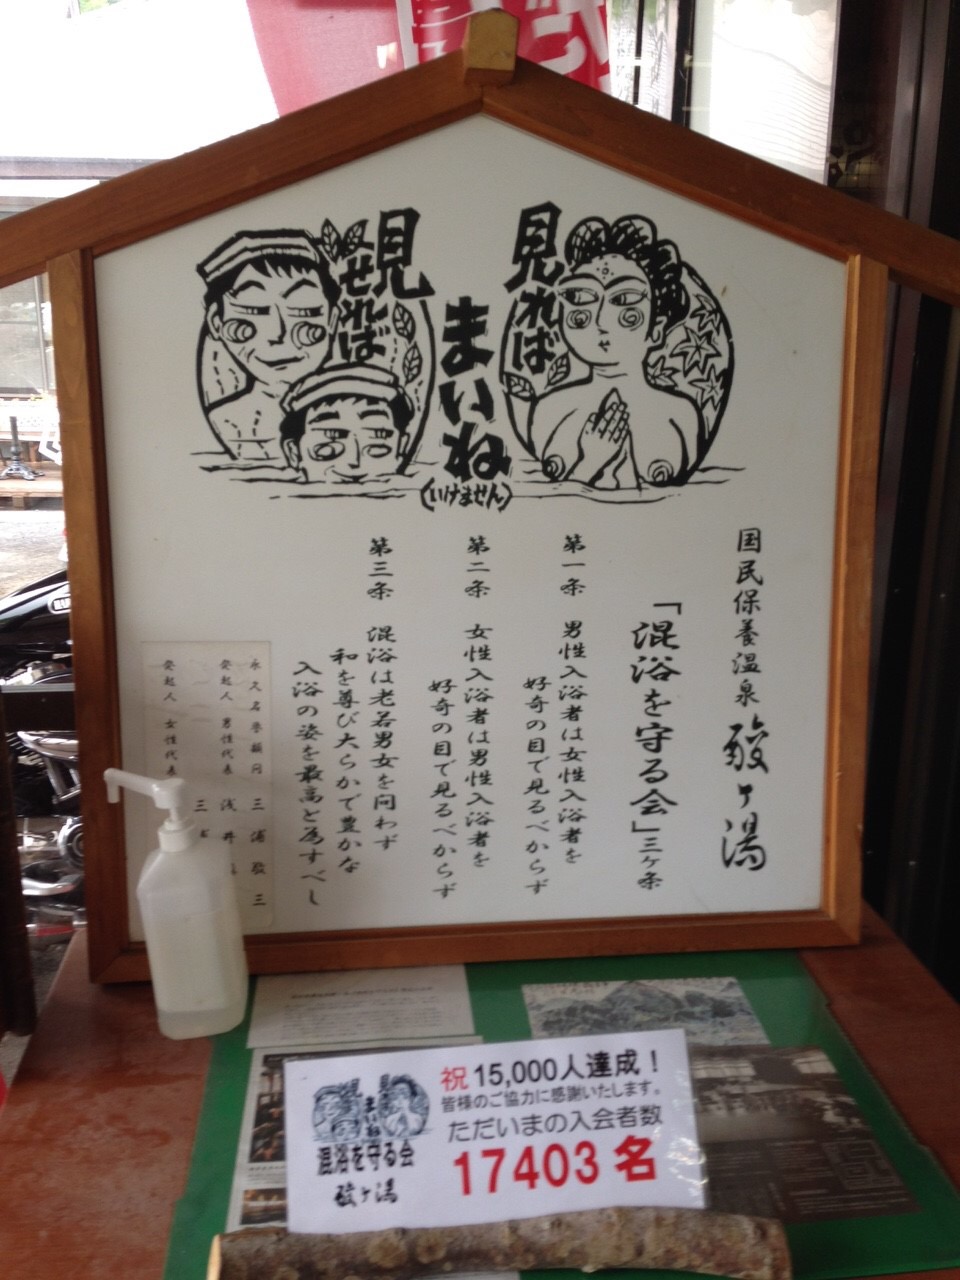 見れば
まいね
(いけません)
見せれば
国民保養温泉 酸ヶ湯
「混浴を守る会」三ヶ条
第一条 男性入浴者は女性入浴者を
好奇の目で見るべからず
第二条 女性入浴者は男性入浴者を
好奇の目で見るべからず
第三条 混浴は老若男女を問わず
和を尊び大らかで豊かな
入浴の姿を最高と為すべし
永久名誉顧問 三浦敬三
発起人 男性代表 浅井
発起人 女性代表 三
祝 15,000人達成！
皆様のご協力に感謝いたします。
ただいまの入会者数
17403名
まいね
混浴を守る会
酸ヶ湯